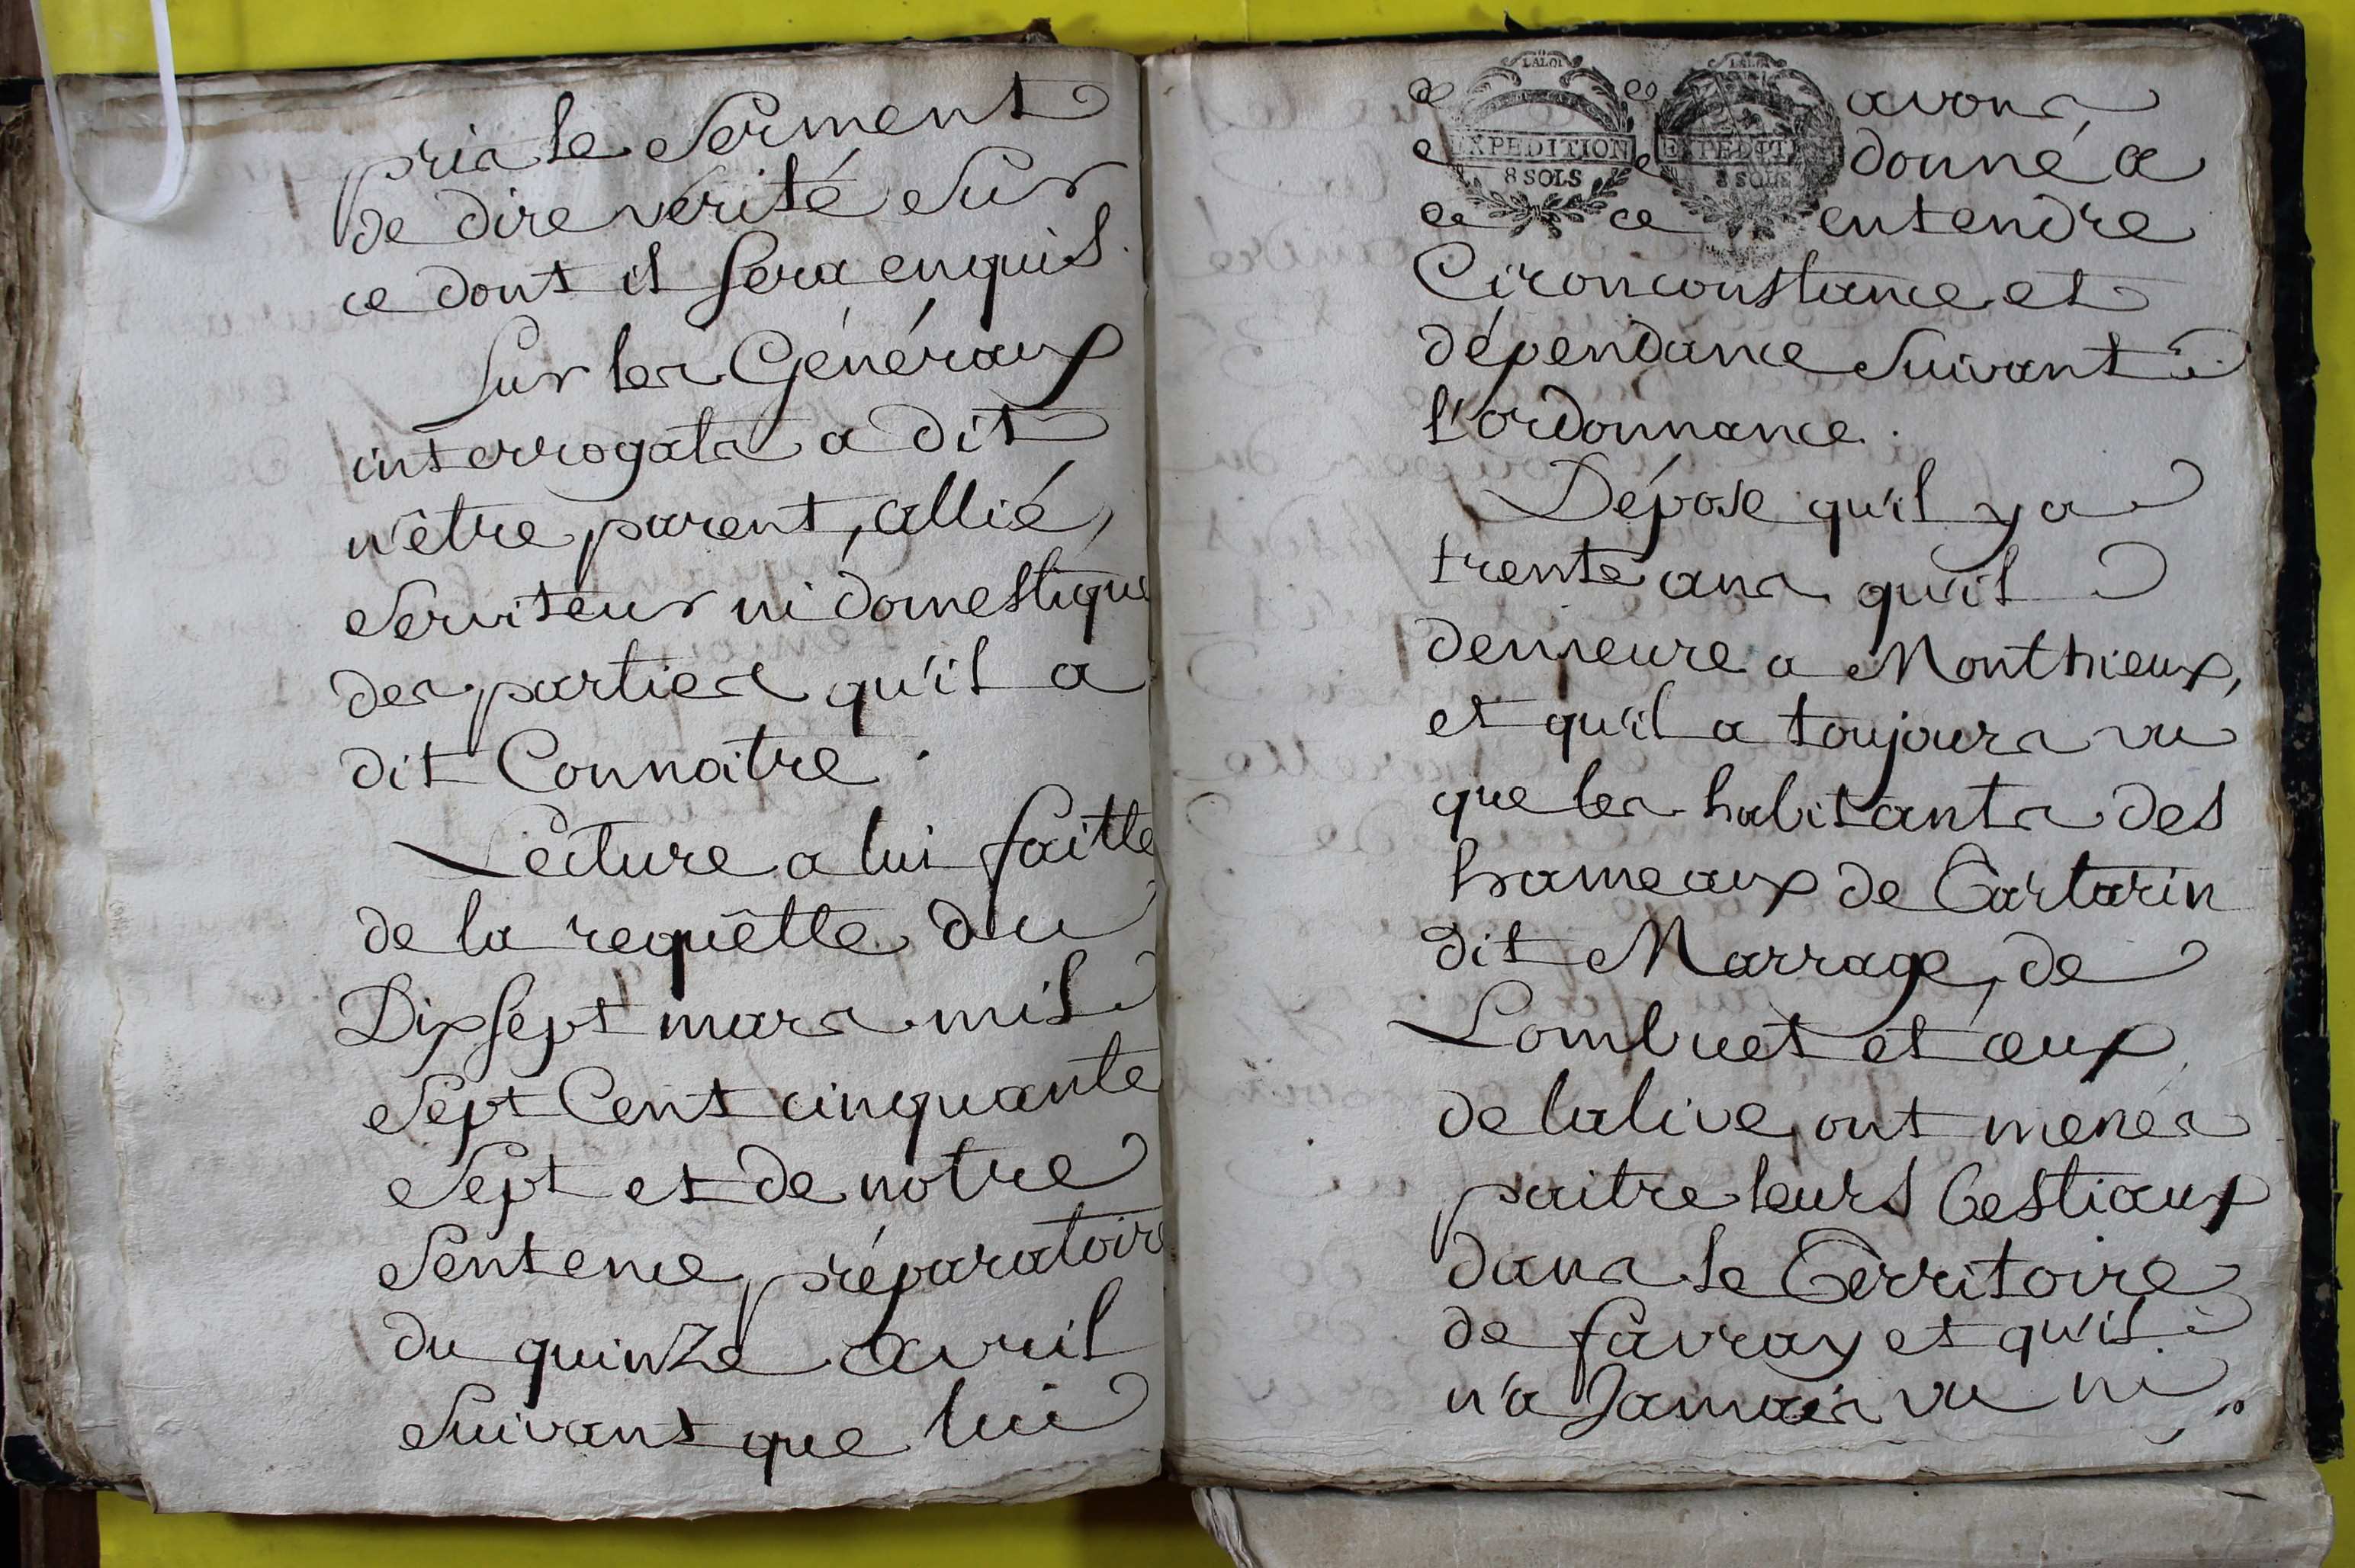 pris le Serment
de dire vérité Sur
ce dont il Sera enquis.
Sur les Généraux
interrogats a dit
n'être parent, allié,
Serviteur ni domestique
des parties qu'il a
dit Connaitre.
Lecture a lui faitte
de la requêtte du
Dix sept mars mil
Sept Cent cinquante
Sept et de notre
Sentence préparatoire
du quinze avril
Suivant que lui
LA LOI LA LOI
avons
EXPEDITION EXPEDITION
donné a
8 SOLS 8 SOLS
entendre
Cironconstance et
dépendance Suivant
l'ordonnance.
Dépose qu'il y a
trente ans qu'il
demeure a Monthieux,
et qu'il a toujours vu
que les habitants des
hameaux de Tartarin
dit Marrage, de
Lombuet et ceux
de lalive, ont menés
paitre leurs bestiaux
dans le Territoire
de favray et qu'il
n'a Jamais vu ni